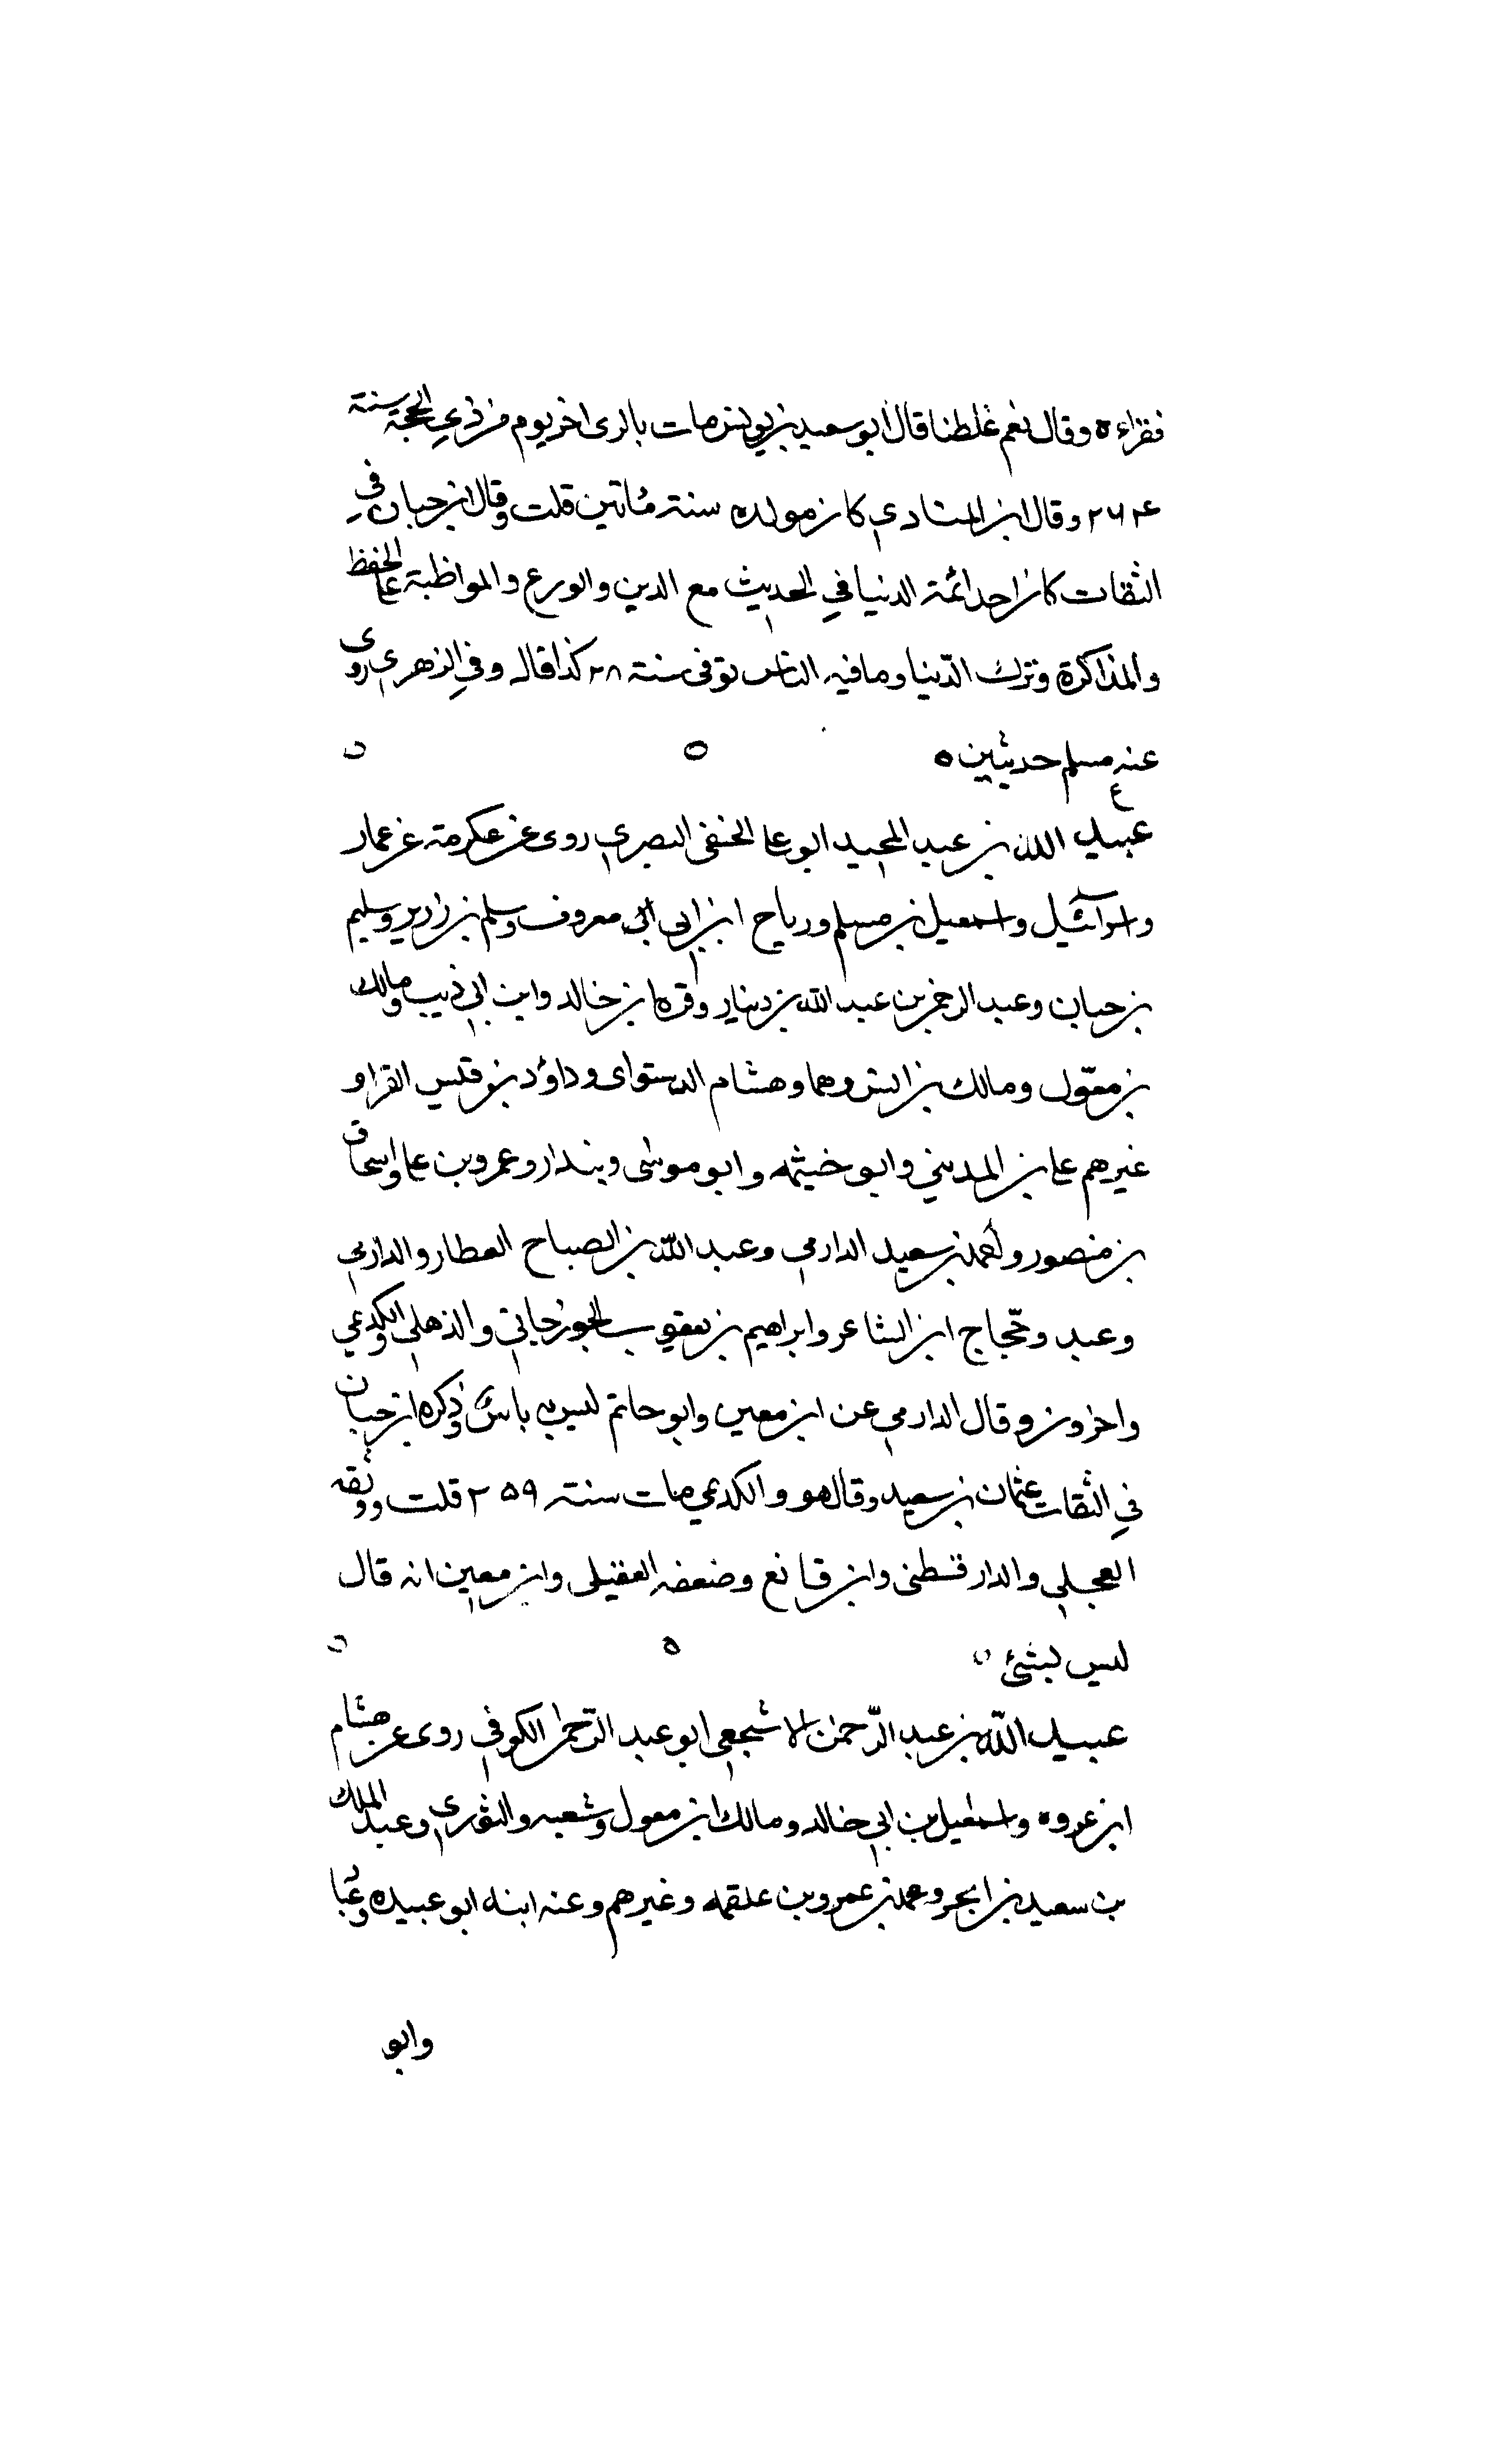 فقراءه وقال نعم غلطنا قال ابو سعيد بن يونس مات بالرى اخر يوم من ذي الحجة سنة
۲۶۴ وقال ابن المنادي كان مولده سنة مأتين قلت وقال ابن حبان في
الثقات كان احد ائمة الدنيا في الحديث مع الدين والورع والمواظبة على الحفظ
والمذاكرة وترك الدّنيا وما فيه الناس توفى سنة ۲۸ كذا قاله وفي الزهري روى
عنه مسلم حديثين ٥
ع
عبيد الله بن عبد المجيد ابو على الحنفى البصري روى عن عكرمة عن عمار
واسرائيل واسمعيل بن مسلم ورباح ابن ابي ابى معروف وسلم بن زرير وسليم
بن حبان وعبد الرحمن بن عبد الله بن دينار وقره ابن خالد وابن ابي ذيب ومالك
بن معوّل ومالك بن انس وهما وهشام الدستواى وداؤد بن قيس الفرا و
غيرهم على بن المديني وابو خيثمه وابو موسى وبندار وعمرو بن على واسحاق
بن منصور واحمد بن سعيد الدارمي وعبد الله بن الصباح العطار والدارمي
وعبد وحجاج ابن الشاعر وابراهيم بن يعقوب الجوزجاني والذهلي والكديمي
واخرون وقال الدارمي عن ابن معين وابو حاتم ليس به باس وذكره ابن حبان
في الثقات عثمان بن سعيد وقال هو والكديمي مات سنة ۲۵۹ قلت ووثقه
العجلي والدارقطنى وابن قانع وضعفه العقيلى وابن معين انه قال
ليس بشئ
عبيد الله بن عبد الرّحمن الاشجعي ابو عبد الرّحمن الكوفي روى عن هشام
ابن عروه واسمعيل بن ابي خالد ومالك ابن معول وشعبه والثوري وعبد الملك
بن سعيد بن ابجر ومحمد بن عمرو بن علقمه وغيرهم وعنه ابنه ابو عبيده وعبا
وابو